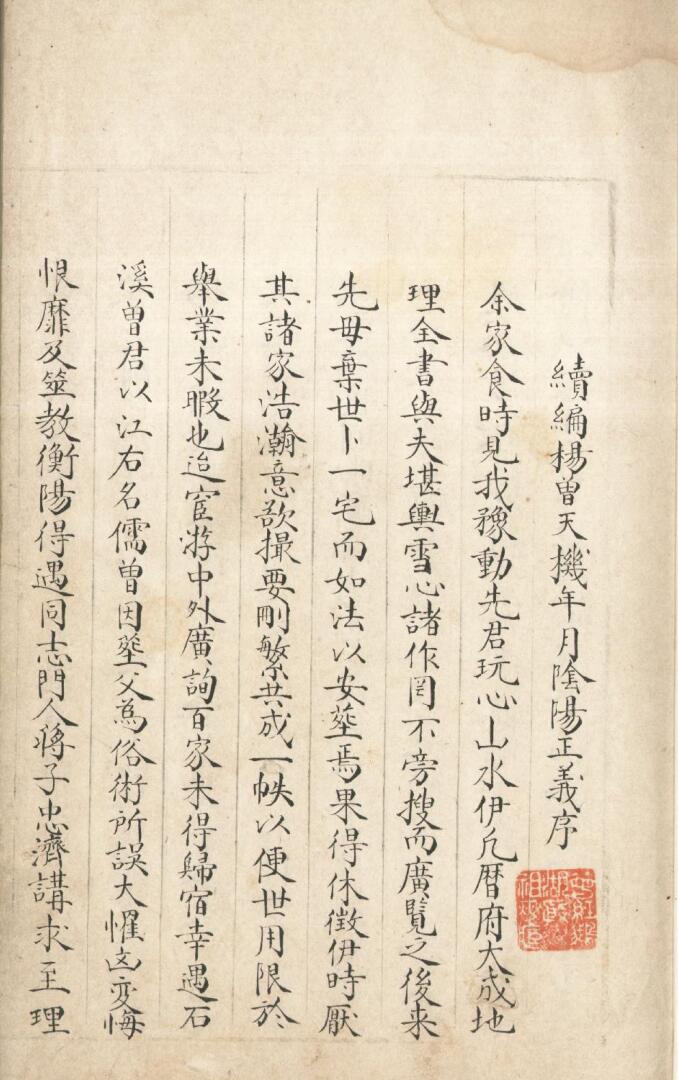 續編楊曾天機年月陰陽正義序
余家食時見我豫動先君玩心山水伊凡曆府大成地
理全書與夫堪輿雪心諸作罔不旁搜而廣覽之後来
先母棄世卜一宅而如法以安塟焉果得休徵伊時厭
其諸家浩瀚意欲撮要刪繁共成一帙以便世用限於
舉業未暇也迨宦游中外廣詢百家未得歸宿幸遇石
溪曾君以江右名儒曾因塟父為俗術所誤大懼凶変悔
恨靡及筮教衡陽得遇同志門人蔣子忠濟講求至理